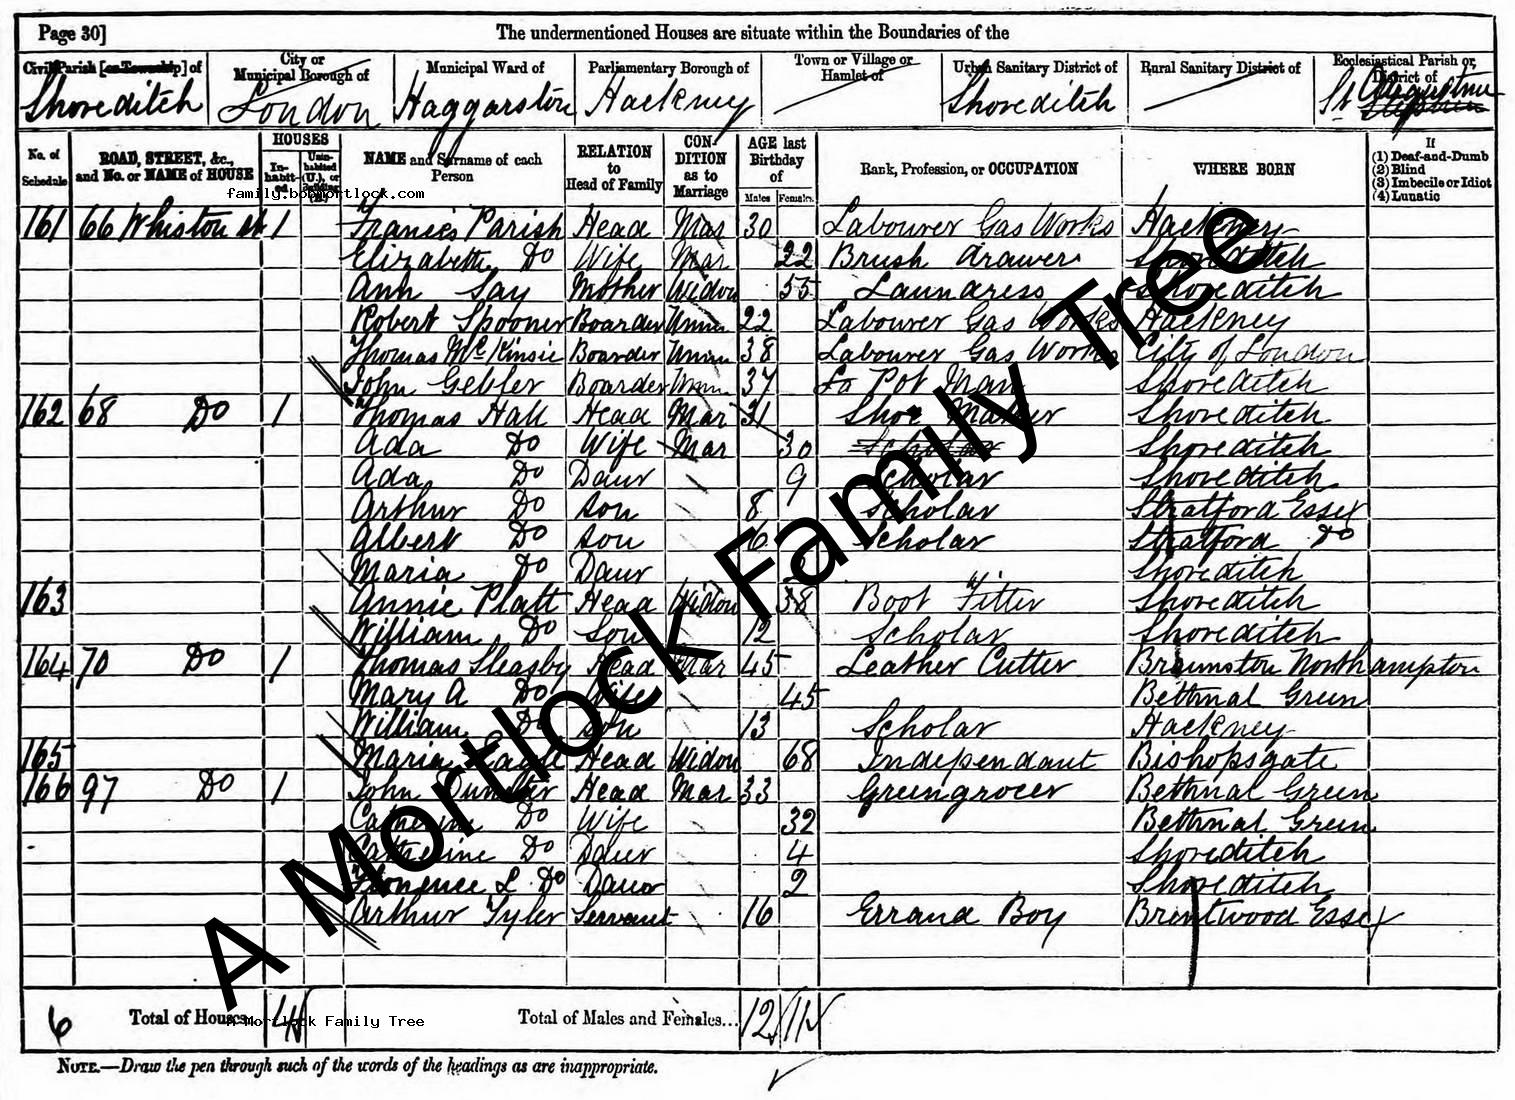 Page 30]
The undermentioned Houses are situate within the Boundaries of the
Civil Parish [or Township] of
City or Municipal Borough of
Municipal Ward of
Parliamentary Borough of
Town or Village or Hamlet of
Urban Sanitary District of
Rural Sanitary District of
Ecclesiastical Parish or District of
Shoreditch London Haggarston Hackney Shoreditch St Augustine
No. of Schedule
ROAD, STREET, &c., and No. or NAME of HOUSE
HOUSES
Inhabited
Uninhabited (U.), or Building (B.)
NAME and Surname of each Person
RELATION to Head of Family
CONDITION as to Marriage
AGE last Birthday of
Males Females
Rank, Profession, or OCCUPATION
WHERE BORN
If
(1) Deaf-and-Dumb
(2) Blind
(3) Imbecile or Idiot
(4) Lunatic
family.bobmortlock.com
161 66 Whiston St 1 Francis Parish Head Mar 30 Labourer Gas Works Hackney
Elizabeth Do Wife Mar 22 Brush drawer Shoreditch
Ann Say Mother Widow 55 Laundress Shoreditch
Robert Spooner Boarder Unm 22 Labourer Gas Works Hackney
Thomas McKinsie Boarder Unm 38 Labourer Gas Works City of London
John Gebler Boarder Unm 37 Pot Man Shoreditch
162 68 Do 1 Thomas Hall Head Mar 31 Shoe Maker Shoreditch
Ada Do Wife Mar 30 Scholar Shoreditch
Ada Do Daur 9 Scholar Shoreditch
Arthur Do Son 8 Scholar Stratford Essex
Albert Do Son 6 Scholar Stratford Do
Maria Do Daur Shoreditch
163 Annie Platt Head Widow 38 Boot Fitter Shoreditch
William Do Son 12 Scholar Shoreditch
164 70 Do 1 Thomas Sleasby Head Mar 45 Leather Cutter Braunston Northampton
Mary A Do Wife 45 Bethnal Green
William Do Son 13 Scholar Hackney
165 Maria Head Widow 68 Independant Bishopsgate
166 97 Do 1 John Head Mar 33 Greengrocer Bethnal Green
Catherine Do Wife 32 Bethnal Green
Catherine Do Daur 4 Shoreditch
Florence L Do Daur 2 Shoreditch
Arthur Tyler Servant 16 Errand Boy Brentwood Essex
A Mortlock Family Tree
6 Total of Houses 4 Total of Males and Females... 12 11
A Mortlock Family Tree
NOTE.—Draw the pen through such of the words of the headings as are inappropriate.